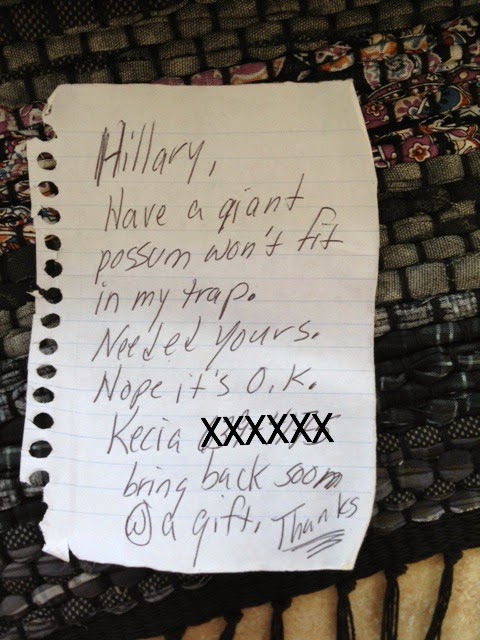 Hillary,
Have a giant
possum won't fit
in my trap.
Needed yours.
Nope it's O.K.
Kecia XXXXXX
bring back soom
w a gift. Thanks